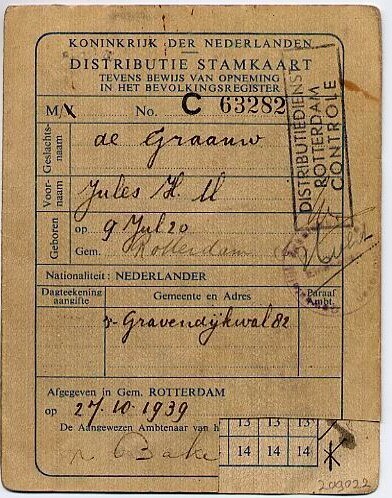 KONINKRIJK DER NEDERLANDEN
DISTRIBUTIE STAMKAART
TEVENS BEWIJS VAN OPNEMING
IN HET BEVOLKINGSREGISTER
M/X No. C 63282
Geslachts-
naam de Graauw
Voor-
naam Jules H. M
Geboren op 9 Jul 20
Gem. Rotterdam
Nationaliteit: NEDERLANDER
Dagteekening
aangifte
Gemeente en Adres
Paraaf
Ambt.
s-Gravendijkwal 82
Afgegeven in Gem. ROTTERDAM
op 27.10.1939
De Aangewezen Ambtenaar van h
DISTRIBUTIEDIENST
ROTTERDAM
CONTROLE
13 13 13
14 14 14
209022